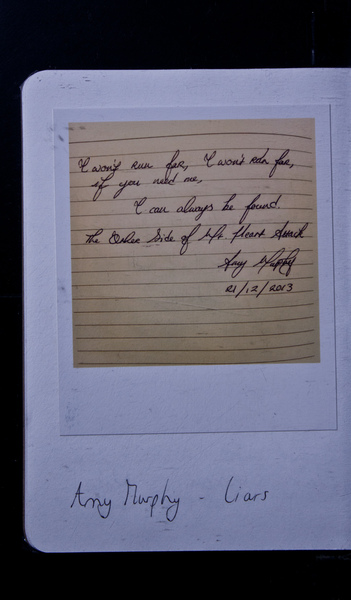 I won't run far, I won't run far,
if you need me,
I can always be found.
The Other Side of Mt Heart Attack
Amy Murphy
21/12/2013
Amy Murphy - Liars